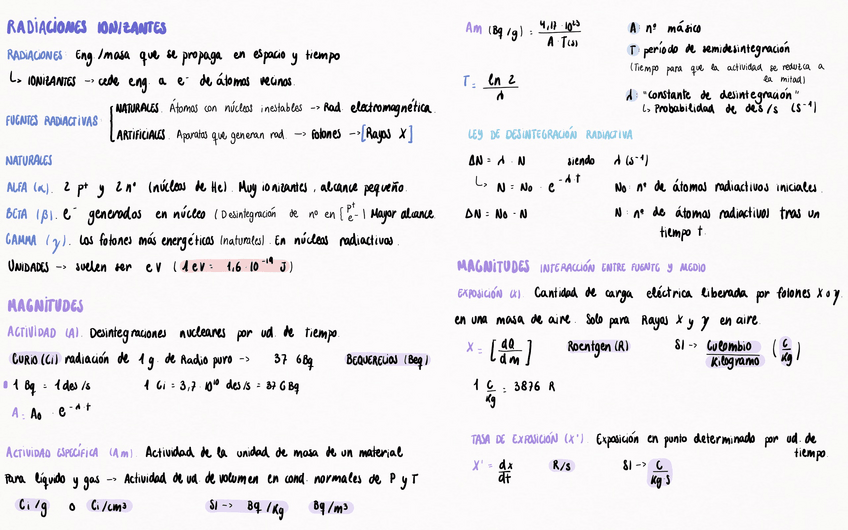 RADIACIONES IONIZANTES
RADIACIONES: Eng/masa que se propaga en espacio y tiempo
↳ IONIZANTES → cede eng. a e⁻ de átomos vecinos.
FUENTES RADIACTIVAS
NATURALES. Átomos con núcleos inestables → Rad. electromagnética.
ARTIFICIALES. Aparatos que generan rad. → Fotones → [Rayos X]
NATURALES
ALFA (α). 2 p⁺ y 2 nº (núcleos de He). Muy ionizantes, alcance pequeño.
BETA (β). e⁻ generados en núcleo (Desintegración de nº en [p⁺ e⁻]) Mayor alcance.
GAMMA (γ). Los fotones más energéticos (naturales). En núcleos radiactivos.
UNIDADES → suelen ser eV (1 eV = 1,6 · 10⁻¹⁹ J)
MAGNITUDES
ACTIVIDAD (A). Desintegraciones nucleares por ud. de tiempo.
CURIO (Ci) radiación de 1 g. de Radio puro → 37 GBq BEQUERELIOS (Beq)
1 Bq = 1 des/s 1 Ci = 3,7 · 10¹⁰ des/s = 37 GBq
A = A₀ · e^-λ·t
ACTIVIDAD ESPECÍFICA (Am). Actividad de la unidad de masa de un material
Para líquido y gas → Actividad de ud. de volumen en cond. normales de P y T
Ci/g o Ci/cm³ SI → Bq/Kg Bq/m³
Am (Bq/g) = 4,17 · 10²³ / A · T(s)
A nº másico
T período de semidesintegración
(Tiempo para que la actividad se reduzca a la mitad)
T = ln 2 / λ
λ "constante de desintegración"
↳ Probabilidad de des/s (s⁻¹)
LEY DE DESINTEGRACIÓN RADIACTIVA
ΔN = λ · N siendo λ (s⁻¹)
↳ N = N₀ · e^-λ·t N₀: nº de átomos radiactivos iniciales.
ΔN = N₀ - N N: nº de átomos radiactivos tras un
tiempo t.
MAGNITUDES INTERACCIÓN ENTRE FUENTE Y MEDIO
EXPOSICIÓN (X). Cantidad de carga eléctrica liberada por fotones X o γ.
en una masa de aire. Solo para Rayos X y γ en aire.
X = [dQ/dm] Roentgen (R) SI → Culombio/Kilogramo (C/Kg)
1 C/Kg = 3876 R
TASA DE EXPOSICIÓN (X'). Exposición en punto determinado por ud. de
tiempo.
X' = dx/dt R/s SI → C/Kg·S